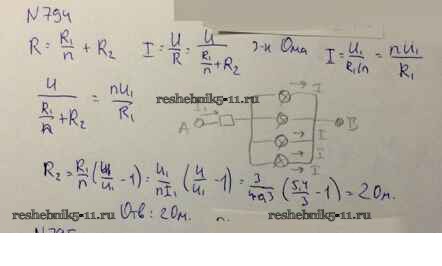 N794
R = R₁/n + R₂  I = U/R = U/(R₁/n + R₂)  З-н Ома  I = U₁/(R₁/n) = nU₁/R₁
U/(R₁/n + R₂) = nU₁/R₁
reshebnik5-11.ru
I
I₁
A
B
I
I
I
R₂ = R₁/n (U/U₁ - 1) = U₁/nI₁ (U/U₁ - 1) = 3/4·0,3 (5,4/3 - 1) = 2 Ом.
reshebnik5-11.ru
Отв: 2 Ом.
reshebnik5-11.ru